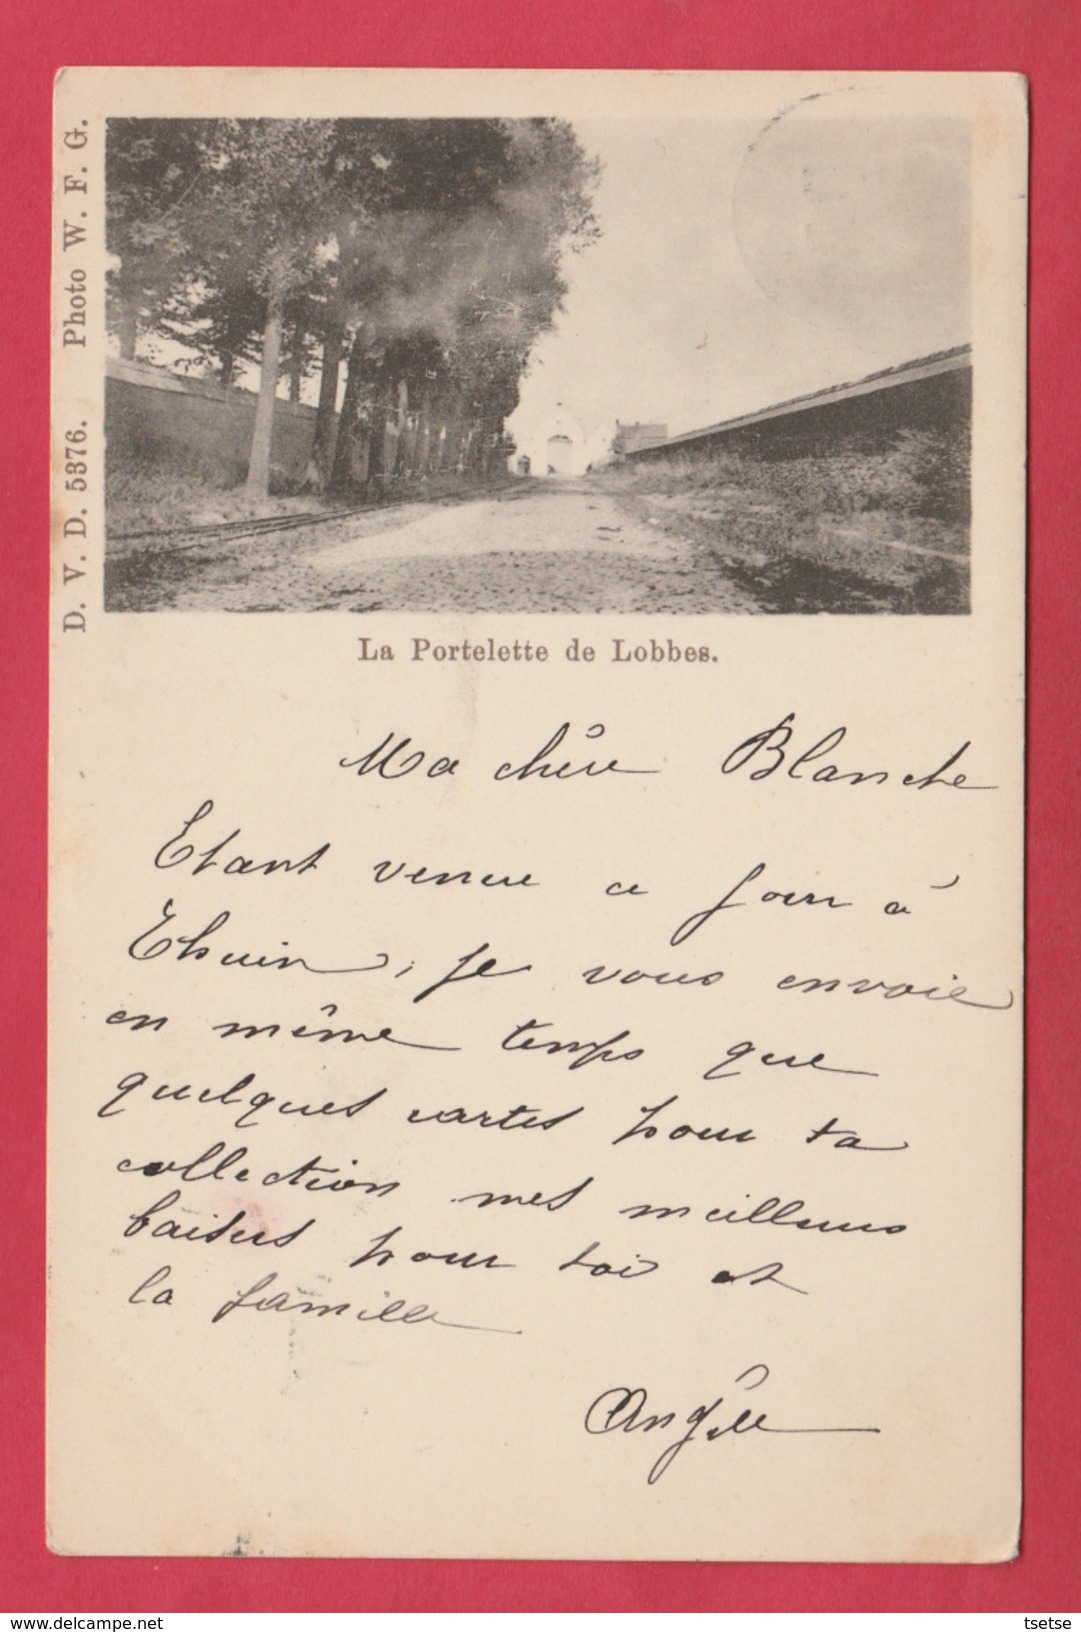 D. V. D. 5376. Photo W. F. G.
La Portelette de Lobbes.
Ma chère Blanche
Etant venue ce jour à
Thuin, je vous envoie
en même temps que
quelques cartes pour ta
collection mes meilleurs
baisers pour toi et
la famille
Angèle
www.delcampe.net
tsetse